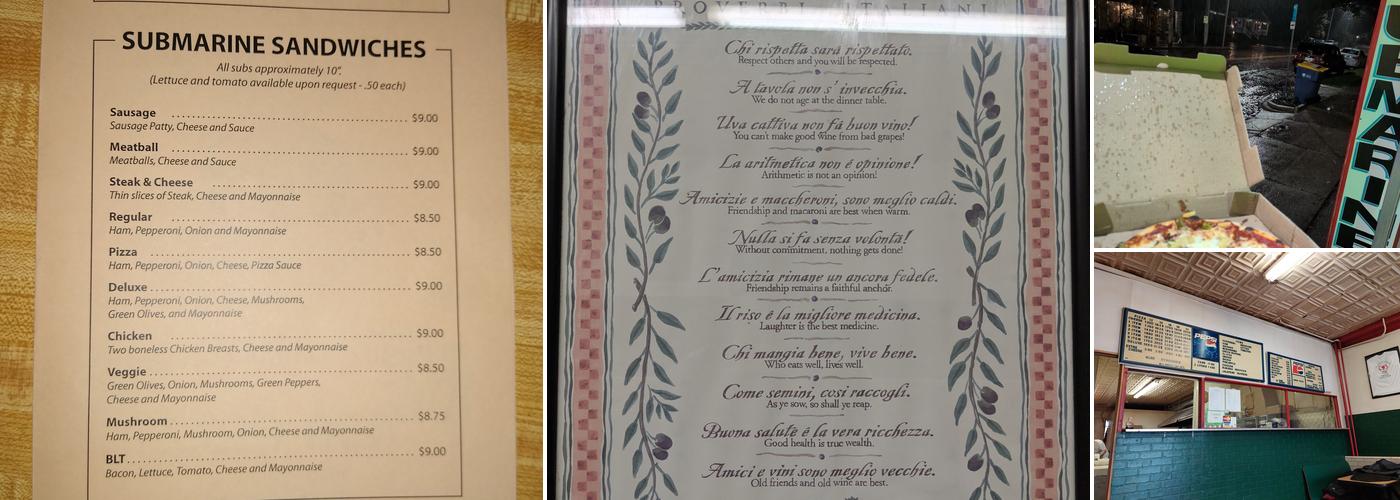 SUBMARINE SANDWICHES
All subs approximately 10".
(Lettuce and tomato available upon request - .50 each)
Sausage $9.00
Sausage Patty, Cheese and Sauce
Meatball $9.00
Meatballs, Cheese and Sauce
Steak & Cheese $9.00
Thin slices of Steak, Cheese and Mayonnaise
Regular $8.50
Ham, Pepperoni, Onion and Mayonnaise
Pizza $8.50
Ham, Pepperoni, Onion, Cheese, Pizza Sauce
Deluxe $9.00
Ham, Pepperoni, Onion, Cheese, Mushrooms,
Green Olives, and Mayonnaise
Chicken $9.00
Two boneless Chicken Breasts, Cheese and Mayonnaise
Veggie $8.50
Green Olives, Onion, Mushrooms, Green Peppers,
Cheese and Mayonnaise
Mushroom $8.75
Ham, Pepperoni, Mushroom, Onion, Cheese and Mayonnaise
BLT $9.00
Bacon, Lettuce, Tomato, Cheese and Mayonnaise
PROVERBI ITALIANI
Chi rispetta sará rispettato.
Respect others and you will be respected.
A tavola non s' invecchia.
We do not age at the dinner table.
Uva cattiva non fá buon vino!
You can't make good wine from bad grapes!
La aritmetica non é opinione!
Arithmetic is not an opinion!
Amicizie e maccheroni, sono meglio caldi.
Friendship and macaroni are best when warm.
Nulla si fa senza volontá!
Without commitment, nothing gets done!
L'amicizia rimane un ancora fedele.
Friendship remains a faithful anchor.
Il riso é la migliore medicina.
Laughter is the best medicine.
Chi mangia bene, vive bene.
Who eats well, lives well.
Come semini, cosi raccogli.
As ye sow, so shall ye reap.
Buona salute é la vera ricchezza.
Good health is true wealth.
Amici e vini sono meglio vecchie.
Old friends and old wine are best.
PEPSI